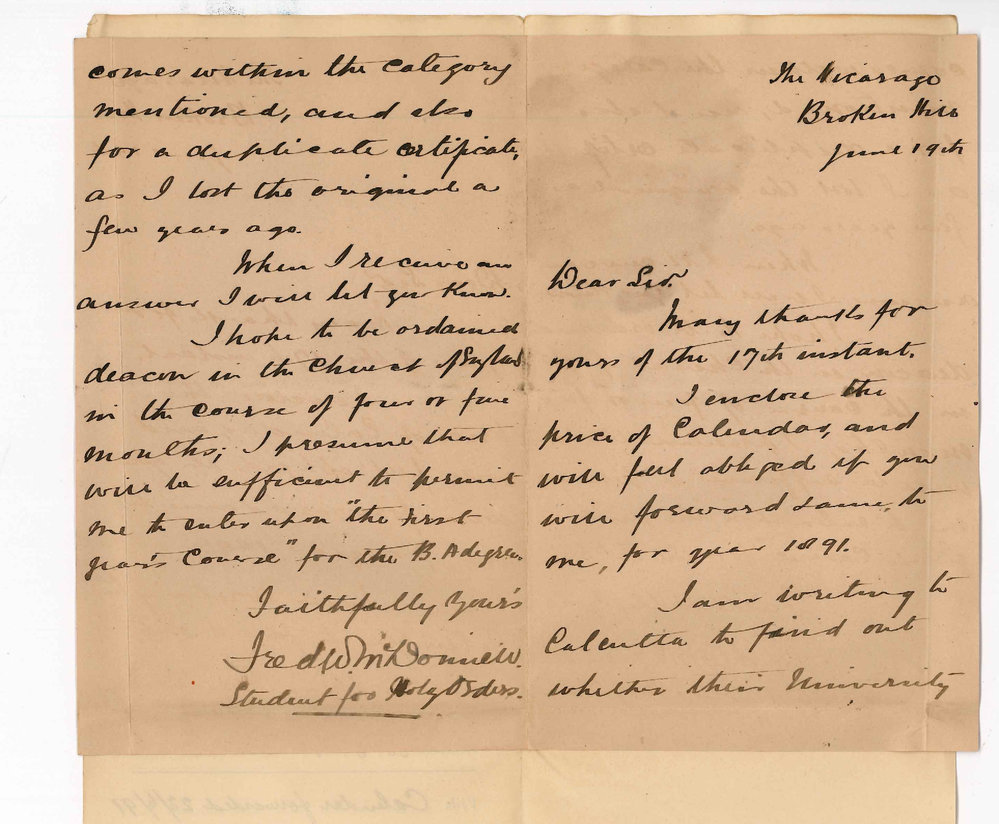 The Vicarage
Broken Hill
June 19th
Dear Sir.
Many thanks for
yours of the 17th instant.
I enclose the
price of Calendar, and
will feel obliged if you
will forward same, to
me, for year 1891.
I am writing to
Calcutta to find out
whether their University
comes within the category
mentioned, and also
for a duplicate certificate,
as I lost the original a
few years ago.
When I receive an
answer I will let you know.
I hope to be ordained
deacon in the Church of England
in the course of four or five
months; I presume that
will be sufficient to permit
me to enter upon "the First
year's Course" for the B. A degree.
Faithfully Yours
Fred W. McDonnell.
Student for Holy Orders.
Calendar forwarded 22/6/91